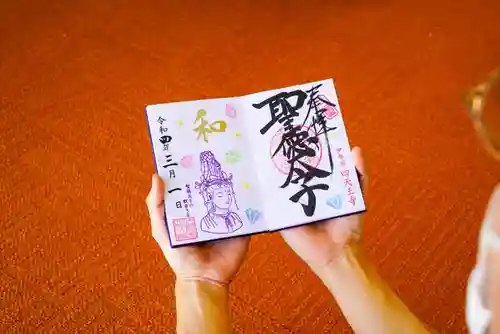 奉拝
聖徳太子
伊勢国 四天王寺
和
令和四年三月一日